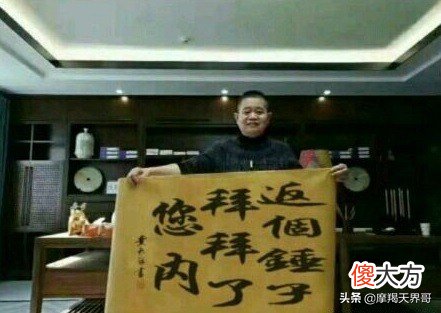 返個錘子
拜拜了
您内
傻大方
头条 @摩羯天界哥